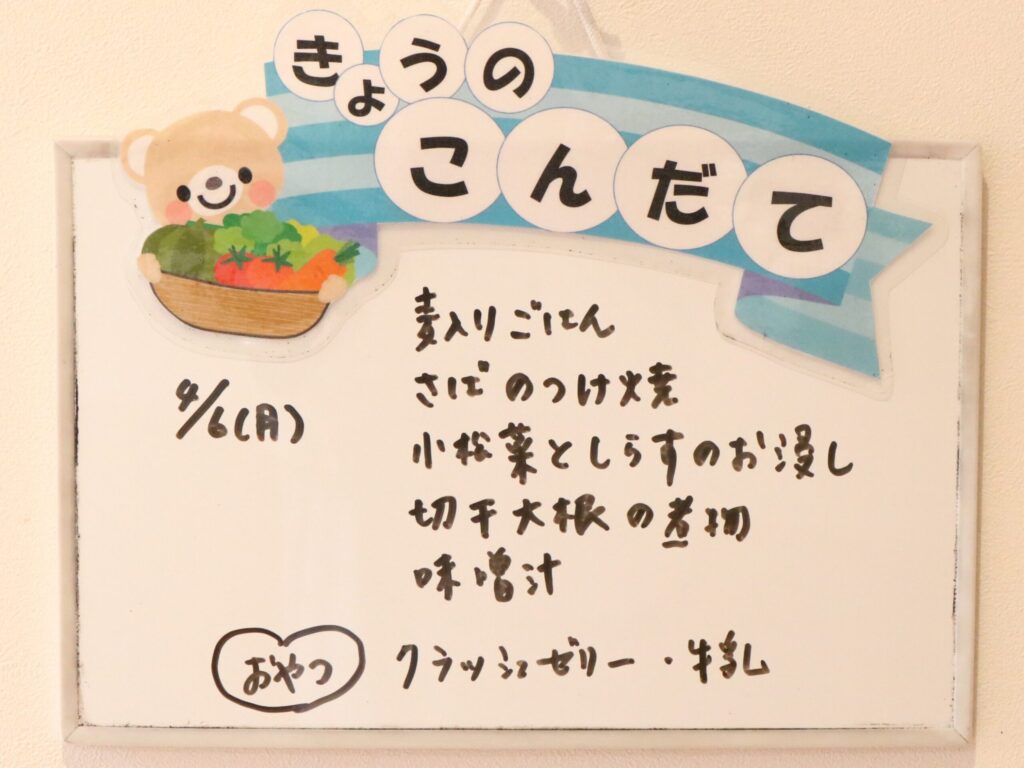 きょうの
こんだて
麦入りごはん
さばのつけ焼
4/6(月)
小松菜としらすのお浸し
切干大根の煮物
味噌汁
おやつ クラッシュゼリー・牛乳